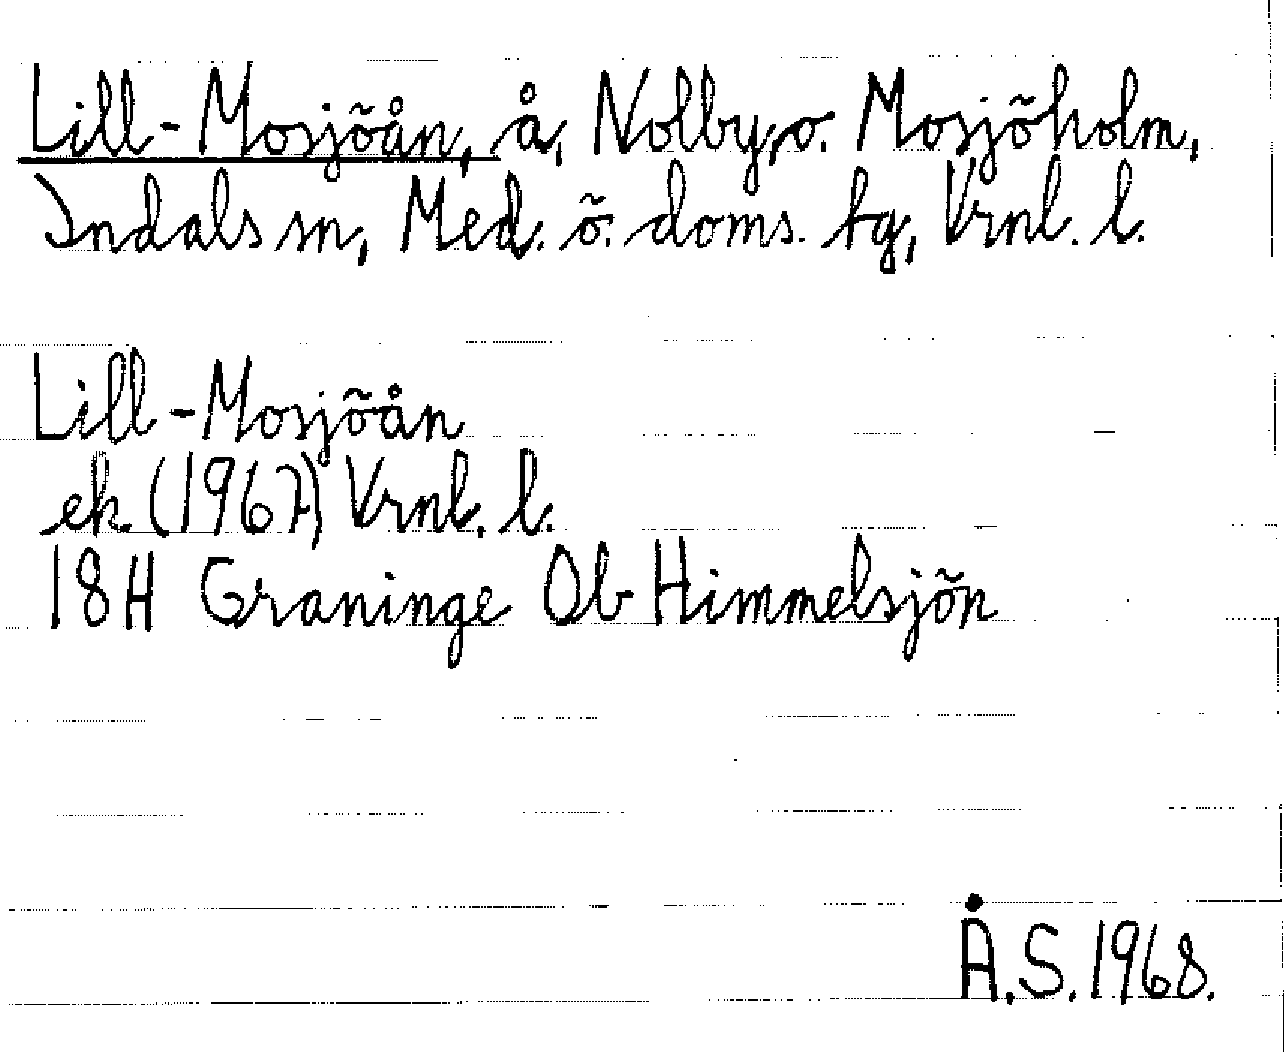 Lill-Mosjöån, å, Nolby, o. Mosjöholm,
Indals sn, Med. ö. doms. tg, Vrnl. l.
Lill-Mosjöån
ek. (1967) Vrnl. l.
18H Graninge 0b Himmelsjön
Å.S. 1968.